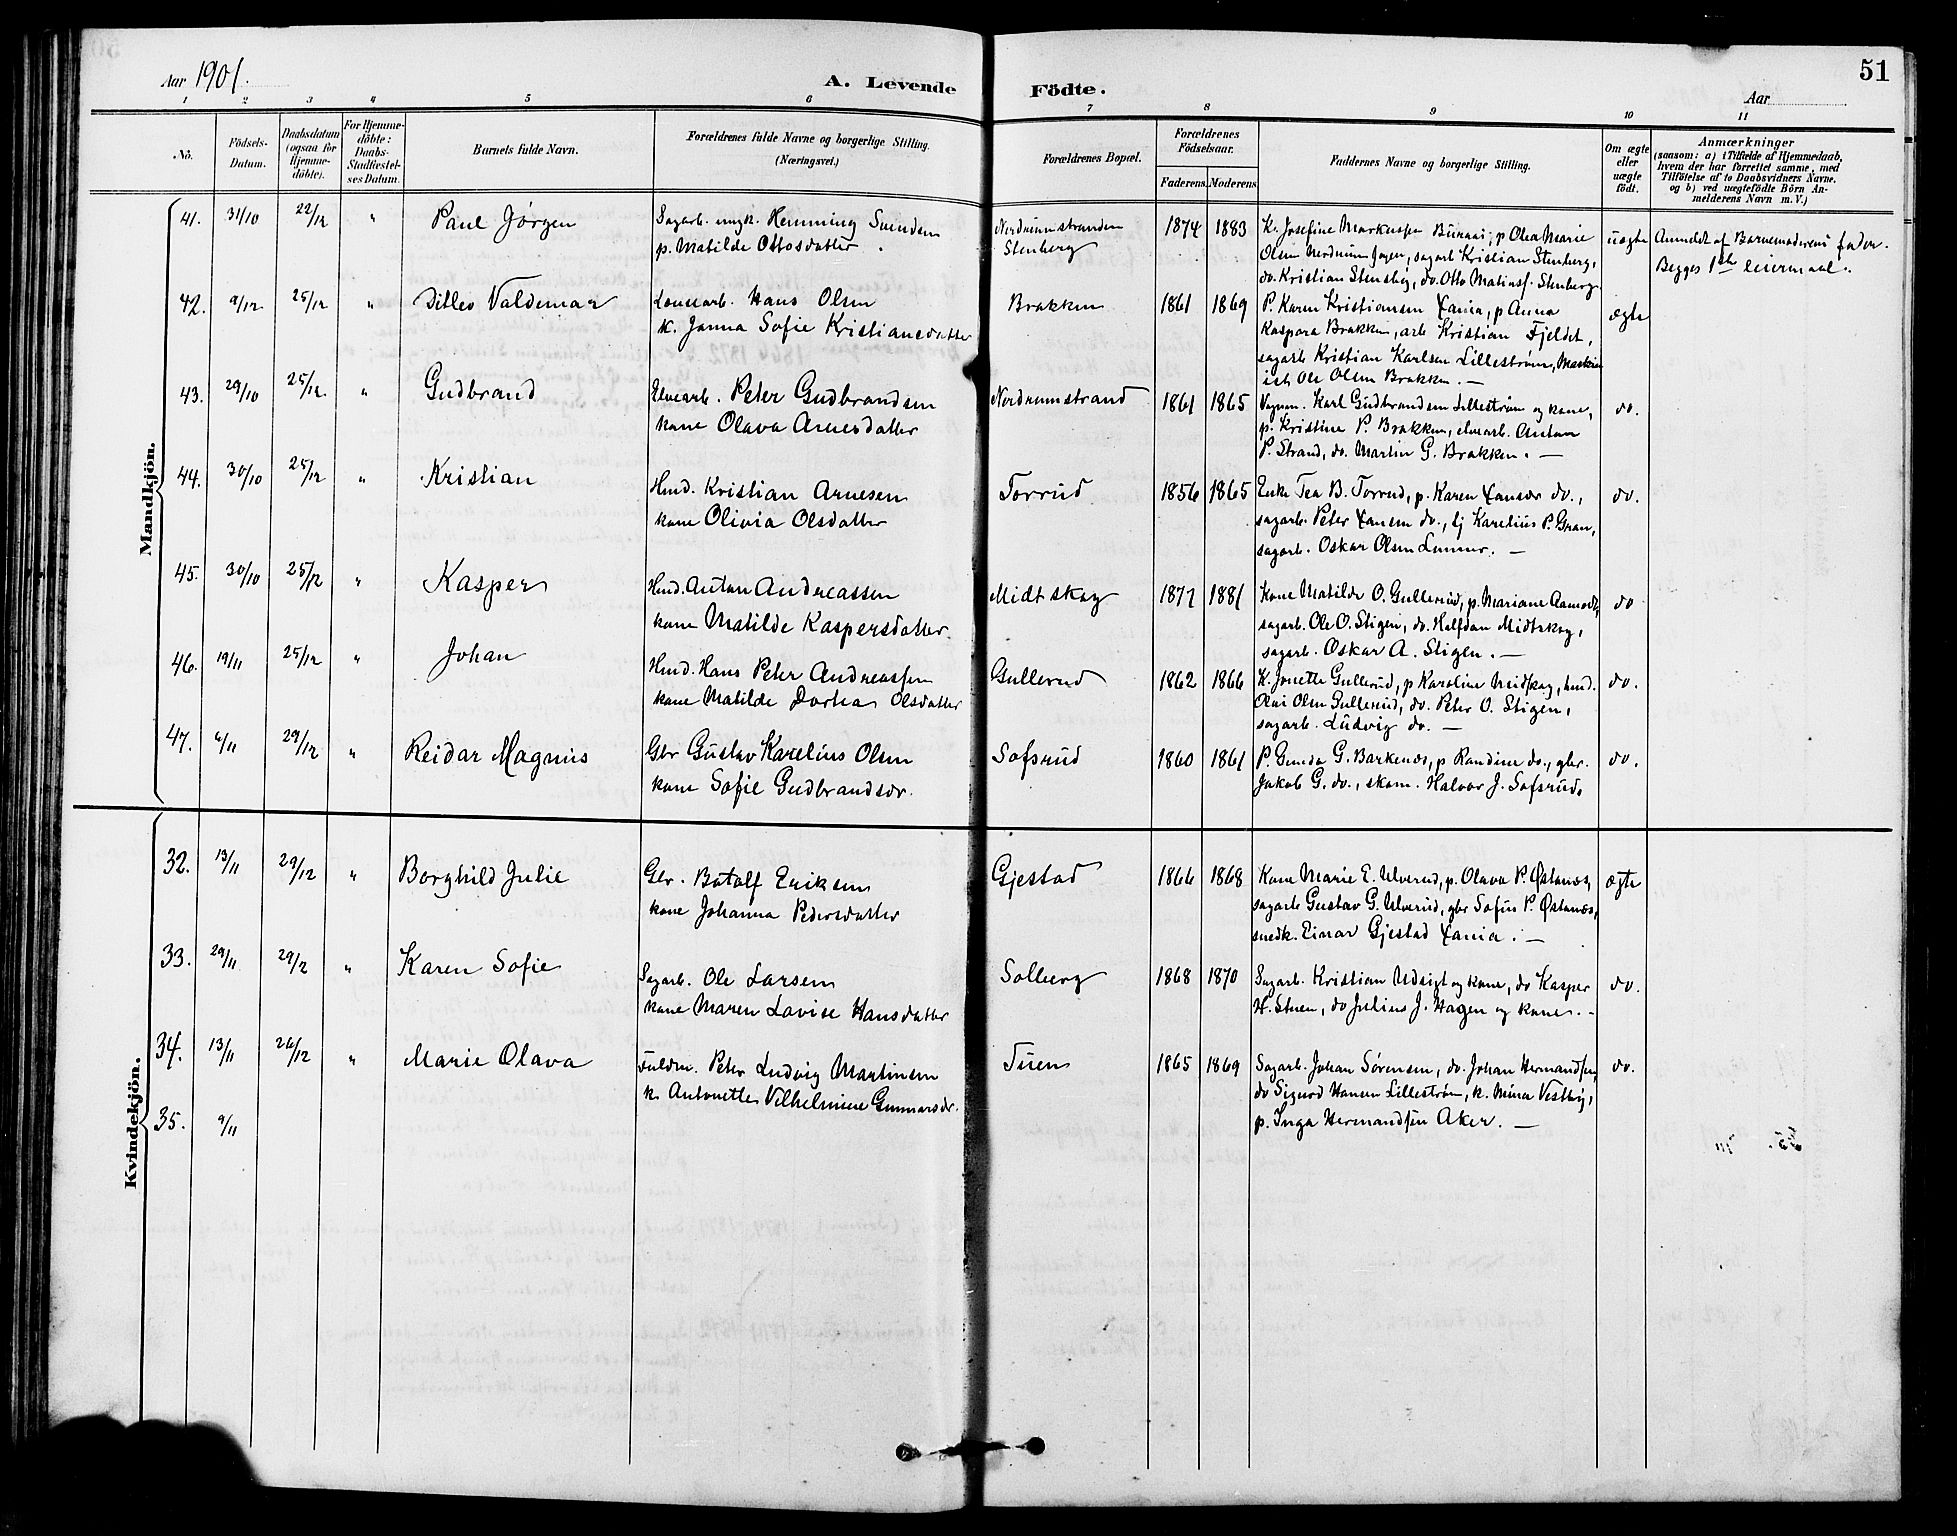 51
Aar 1901. A. Levende Födte. Aar
1 2 3 4 5 6 7 8 9 10 11
No. Födsels-Datum. Daabsdatum (ogsaa for Hjemme-döbte). For Hjemme-döbte: Daabs-Stadfæstel-ses Datum. Barnets fulde Navn. Forældrenes fulde Navne og borgerlige Stilling. (Næringsvei.) Forældrenes Bopæl. Forældrenes Födselsaar. Faderens. Moderens. Faddernes Navne og borgerlige Stilling. Om ægte eller uægte födt. Anmærkninger (saasom: a) i Tilfælde af Hjemmedaab, hvem der har forrettet samme, med Tilföielse af to Daabsvidners Navne, og b) ved uægtefödte Börn An-melderens Navn m. V.)
Mandkjön.
41. 31/10 22/12 " Paul Jørgen Sagarb. ungk. Henning Svendsen Nordrumstranden 1874 1883 K. Josefine Markusen p. Olea Marie uægte Anmeldt af Barnemoderens fader.
p. Matilde Ottosdatter Stenberg Olsen Nordrum sagarb Kristian Stenberg, Begges 1ste leiermaal.
do. Kristian Stensby, do. Otto Matiasf. Stenberg
42. 9/12 25/12 " Ditlev Valdemar Lounarb. Hans Olsen Brakken 1861 1869 P. Karen Kristiansen Xania, p Anna ægte
k. Janna Sofie Kristiansdatter Kaspara Brakken, arb Kristian Fjeldet,
sagarb Kristian Karlsen Lillestrøm, Maskin
ist Ole Olsen Brakken. —
43. 29/10 25/12. " Gudbrand Elvearb. Peter Gudbrandsen Nordrumstrand 1861 1865 Vognm. Karl Gudbrandsen Lillestrøm og kone, do.
kone Olava Arnesdatter p. Kristine P. Brakken, elvearb. Anton
P. Strand, do. Martin G. Brakken. —
44. 30/10 25/12 " Kristian Hmd. Kristian Arnesen Torrud 1856 1865 Enke Tea B. Torrud, p. Karen Xansdr do., do.
kone Olivia Olsdatter sagarb. Peter Xansen do., tj Karelius P. Gran,
sagarb. Oskar Olsen Lunner. —
45. 30/10 25/12 " Kasper Hmd. Anton Andreassen Midtskog 1877 1881 Kone Matilde O. Gullerud, p. Mariane Aamodt, do
kone Matilde Kaspersdatter sagarb. Ole O. Stigen, do. Halfdan Midtskog,
sagarb. Oskar A. Stigen. —
46. 19/11 25/12 " Johan Hmd. Hans Peter Andreassen Gullerud 1862 1866 K. Jonette Gullerud, p Karoline Midtskog, hmd. do.
kone Matilde Dortea Olsdatter Olai Olsen Gullerud, do. Peter O. Stigen,
sagarb. Ludvig do. —
47. 6/11 29/12 " Reidar Magnus Gbr Gustav Karelius Olsen Sofsrud 1860 1861 P. Gunda G. Barkenæs, p Randine do., gbr. do.
kone Sofie Gudbrandsdr. Jakob G. do., skom. Halvor J. Sofsrud.
Kvindekjön.
32. 13/11 29/12 " Borghild Julie Gbr. Botolf Eriksen Gjestad 1866 1868 Kone Marie E. Ulverud, p. Olava P. Østanæs, ægte
kone Johanna Pedersdatter sagarb Gustav G. Ulverud, gbr Sofus P. Østanæs,
snedk. Einar Gjestad Xania. —
33. 29/11 29/2 " Karen Sofie Sagarb. Ole Larsen Solberg 1868 1870 Sagarb. Kristian Udsigt og kone, do Kasper do.
kone Maren Lovise Hansdatter H. Stuen, do Julius J. Hagen og kone. -
34. 13/11 26/12 " Marie Olava Fuldm. Peter Ludvig Martinsen Tuen 1865 1869 Sagarb. Johan Sørensen, do. Johan Hermandsen, do.
k. Antonette Vilhelmine Gunnarsdr. do Sigurd Hansen Lillestrøm, k. Mina Vestby,
p. Inga Hermandsen Aker. —
35. 9/11